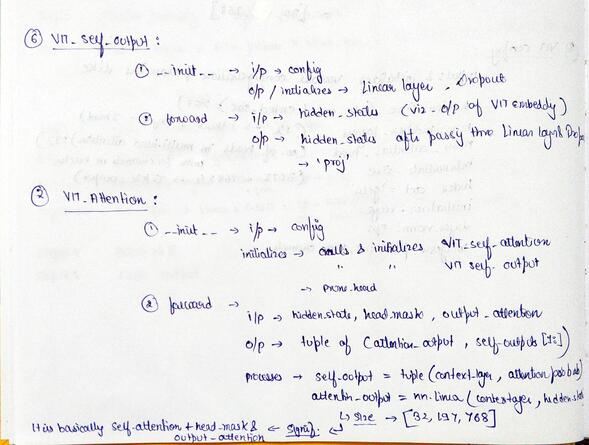 ⑥ VIT_self_output :
① __init__ → i/p → config
o/p / initializes → Linear layer, Dropout
② forward → i/p → hidden_states (viz - o/p of VIT Embeddg)
o/p → hidden_states after passig thro Linear layer & Dropou
→ 'proj'
⑦ VIT_Attention :
① __init__ → i/p → config
initializes → calls & initializes VIT_self-attention
" " VIT self-output
→ prune_head
② forward →
i/p → hidden_state, head_mask, output_attention
o/p → tuple of (attention_output, self_outputs [1:])
processes → self-output = tuple (context-layer, attention prob
attentin_output = nn.linea (contextlayer, hidden_stat
↳ size → [32, 197, 768]
It is basically self-attention + head_mask & ← signif. ↵
output_attention